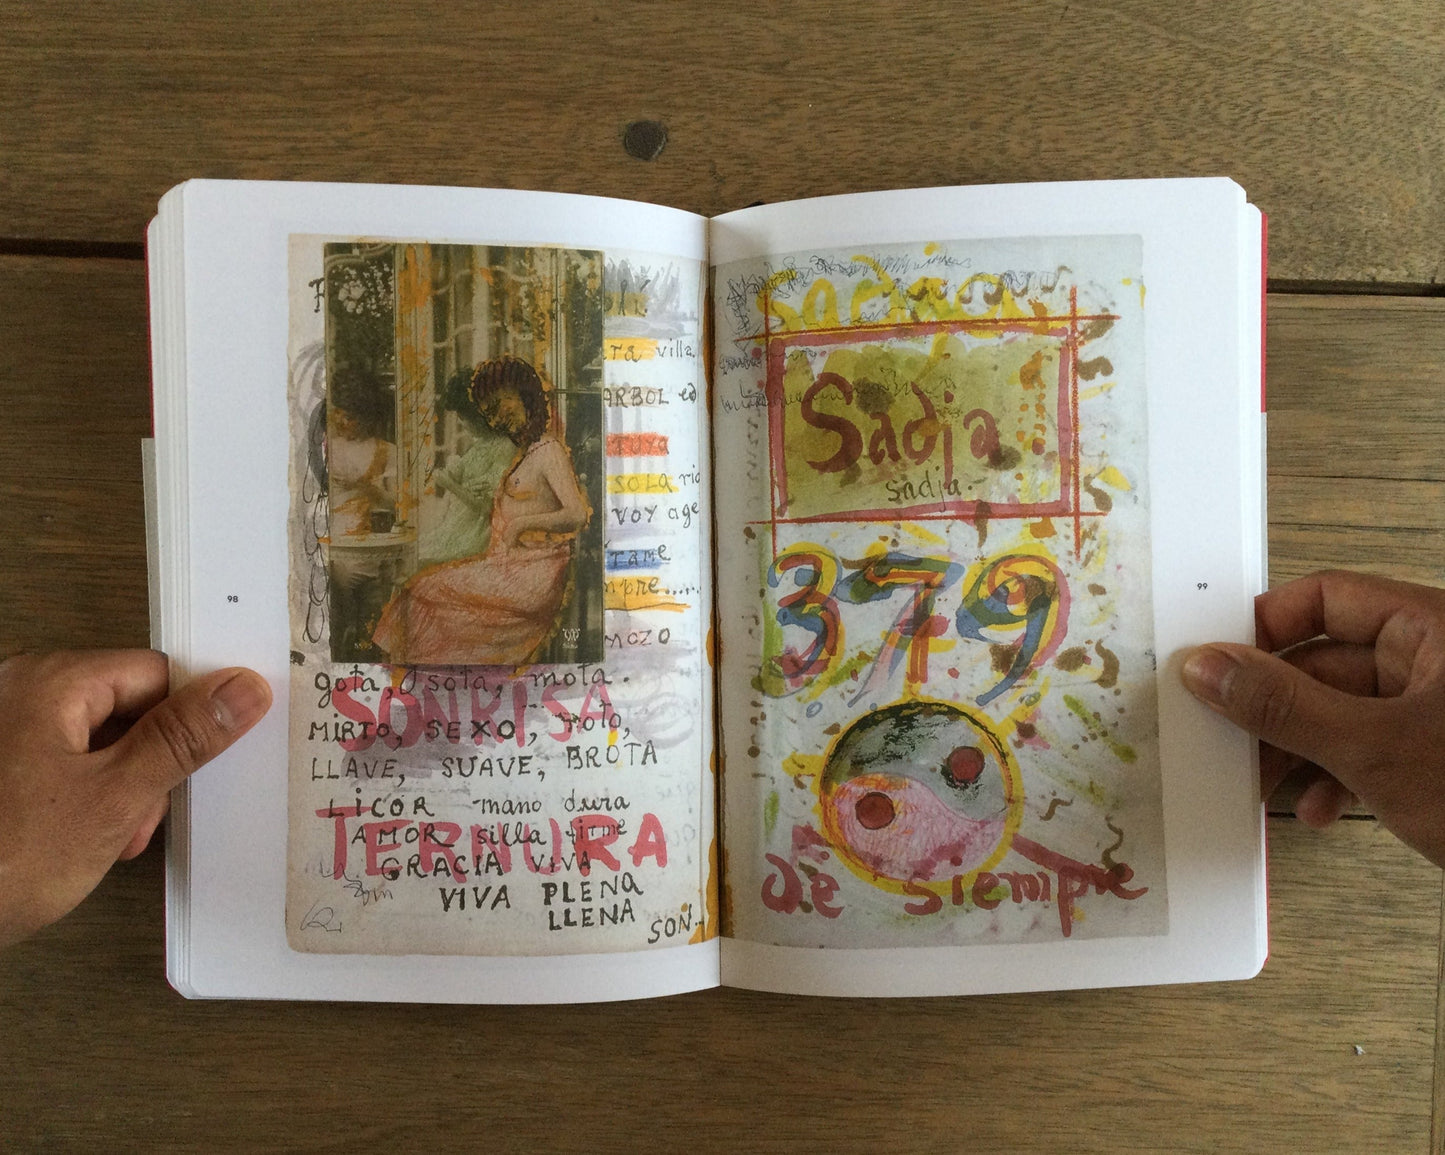 98
villa
ARBOL ed
TUYA
SOLA rio
VOY age
TAME
mpre......
MOZO
gota, sota, mota.
SONRISA
MIRTO, SEXO, roto,
LLAVE, SUAVE, BROTA
LICOR mano dura
TERNURA
AMOR silla firme
GRACIA VIVA
VIVA PLENA
LLENA
SON..
sadja
Sadja
sadja.-
99
379
de siempre